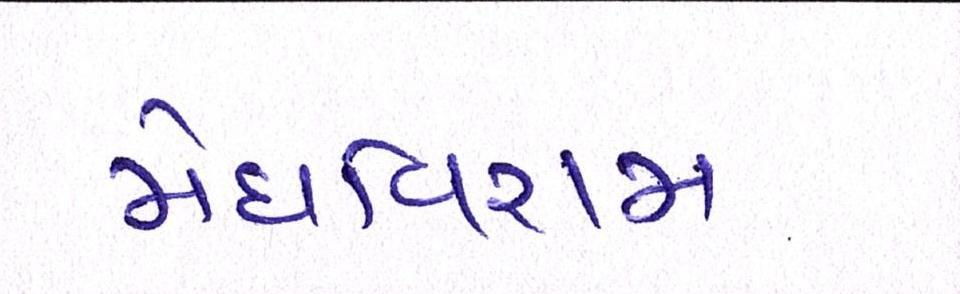 મેઘવિરામ